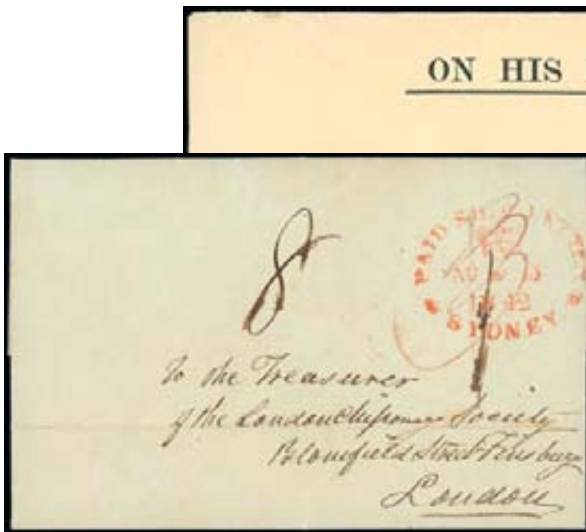 ON HIS
8
PAID SHIP LETTER
AU
1842
SYDNEY
To the Treasurer
of the London Missionary Society
Blomfield Street Finsbury
London